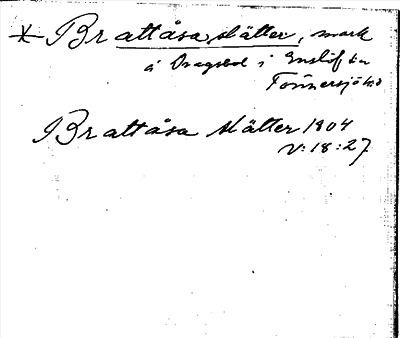 * Brattåsa slätter, mark
å Dragsbol i Enslöfs sn
Tönnersjö hd
Brattåsa slätter 1804
V: 18: 27